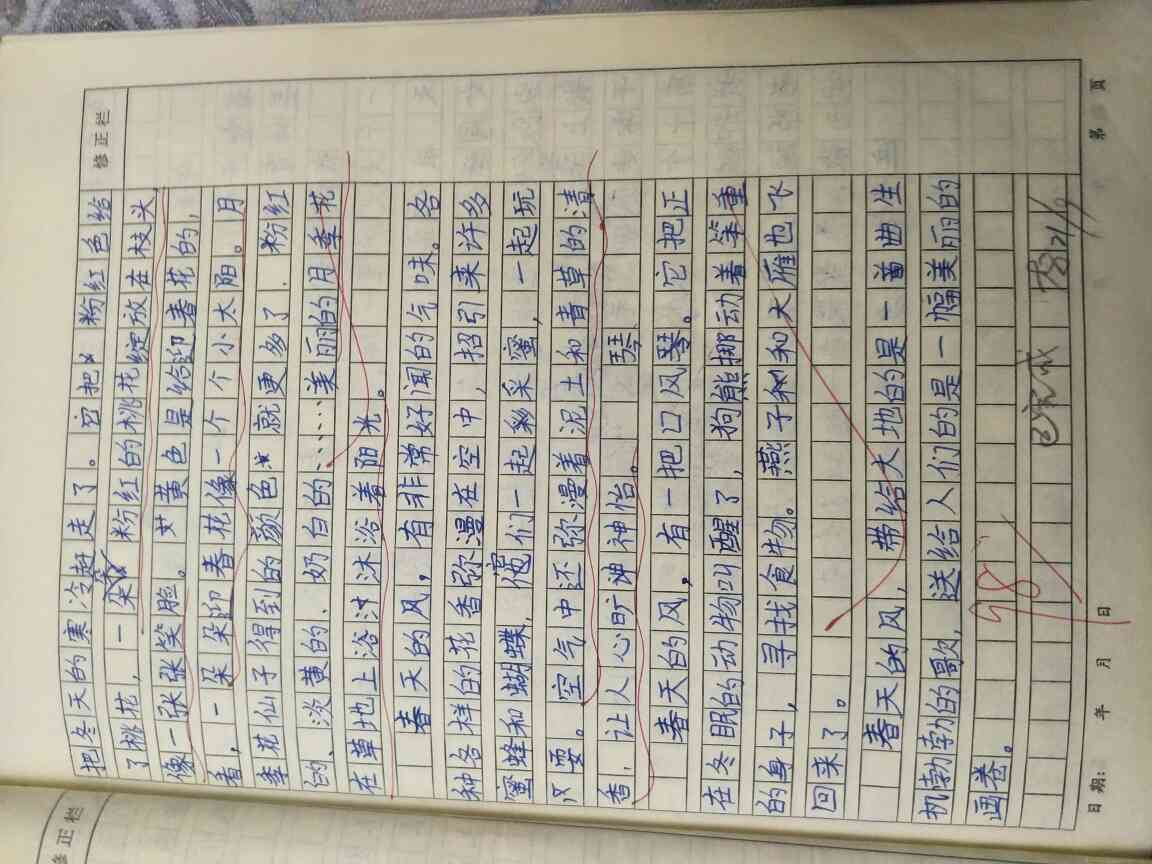 修正栏
把冬天的寒冷赶走了。它把粉红色给
了桃花,一朵粉红的桃花绽放在枝头
像一张张笑脸。黄色是给迎春花的,
看,一朵朵迎春花像一个个小太阳。月
季花仙子得到的颜色就更多了.粉红
的、淡黄的.奶白的……美丽的月季花
在草地上沐浴着阳光。
春天的风,有非常好闻的气味。各
种各样的花香弥漫在空中,招引来许多
蜜蜂和蝴蝶,们一起采蜜,一起玩
耍。空气中还弥漫着泥土和青草的清
香,让人心旷神怡。
琴
春天的风,有一把口风琴。它把正
在冬眠的动物叫醒了,狗熊挪动着笨重
的身子,寻找食物。燕子和大雁也飞
回来了。
春天的风,带给大地的是一首曲生
机勃勃的歌,送给人们的是一幅美丽的
画卷。
98
日期: 年 月 日
第 页
修正栏